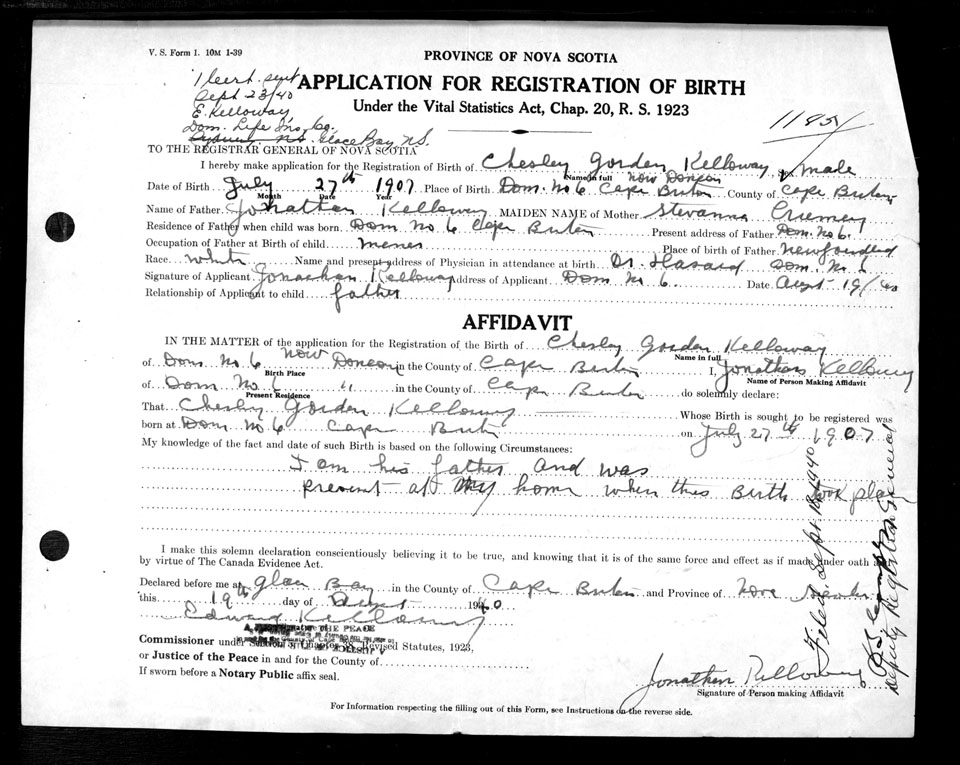 V. S. Form 1. 10M 1-39
PROVINCE OF NOVA SCOTIA
1 cert. sent
Sept 23/40
E. Kelloway
Dom. Life Ins. Co.
Sydney N.S. Glace Bay N.S.
APPLICATION FOR REGISTRATION OF BIRTH
Under the Vital Statistics Act, Chap. 20, R. S. 1923
TO THE REGISTRAR GENERAL OF NOVA SCOTIA
I hereby make application for the Registration of Birth of Chesley Gorden Kelloway, made
Name in full Now Doncon
Date of Birth July 27th 1907 Place of Birth Dom. No 6 Cape Breton County of Cape Breton
Month Date Year
Name of Father Jonathan Kelloway MAIDEN NAME of Mother Stevanna
Residence of Father when child was born Dom No 6 Cape Breton Present address of Father Dom. No 6.
Occupation of Father at Birth of child miner Place of birth of Father Newfoundland
Race white Name and present address of Physician in attendance at birth Dr. Dom. No. 6
Signature of Applicant Jonathan Kelloway Address of Applicant Dom No 6. Date Augst 19/40
Relationship of Applicant to child father
AFFIDAVIT
IN THE MATTER of the application for the Registration of the Birth of Chesley Gorden Kelloway
Name in full
of Dom. No 6 Now Doncon in the County of Cape Breton I, Jonathan Kelloway
Birth Place Name of Person Making Affidavit
of Dom. No 6 " in the County of Cape Breton do solemnly declare:
Present Residence
That Chesley Gorden Kelloway Whose Birth is sought to be registered was
born at Dom. No 6 Cape Breton on July 27th 1907
My knowledge of the fact and date of such Birth is based on the following Circumstances:
I am his father and was
present at my home when this Birth took place
I make this solemn declaration conscientiously believing it to be true, and knowing that it is of the same force and effect as if made under oath
by virtue of The Canada Evidence Act.
Declared before me at Glace Bay in the County of Cape Breton and Province of Nova Scotia
this 19th day of Augst 1940
Edward Kelloway
THE PEACE
Commissioner under Section 5, Chapter 38, Revised Statutes, 1923,
or Justice of the Peace in and for the County of
If sworn before a Notary Public affix seal.
Jonathan Kelloway
Signature of Person making Affidavit
For Information respecting the filling out of this Form, see Instructions on the reverse side.
Filed: Sept 1940
Deputy Registrar General